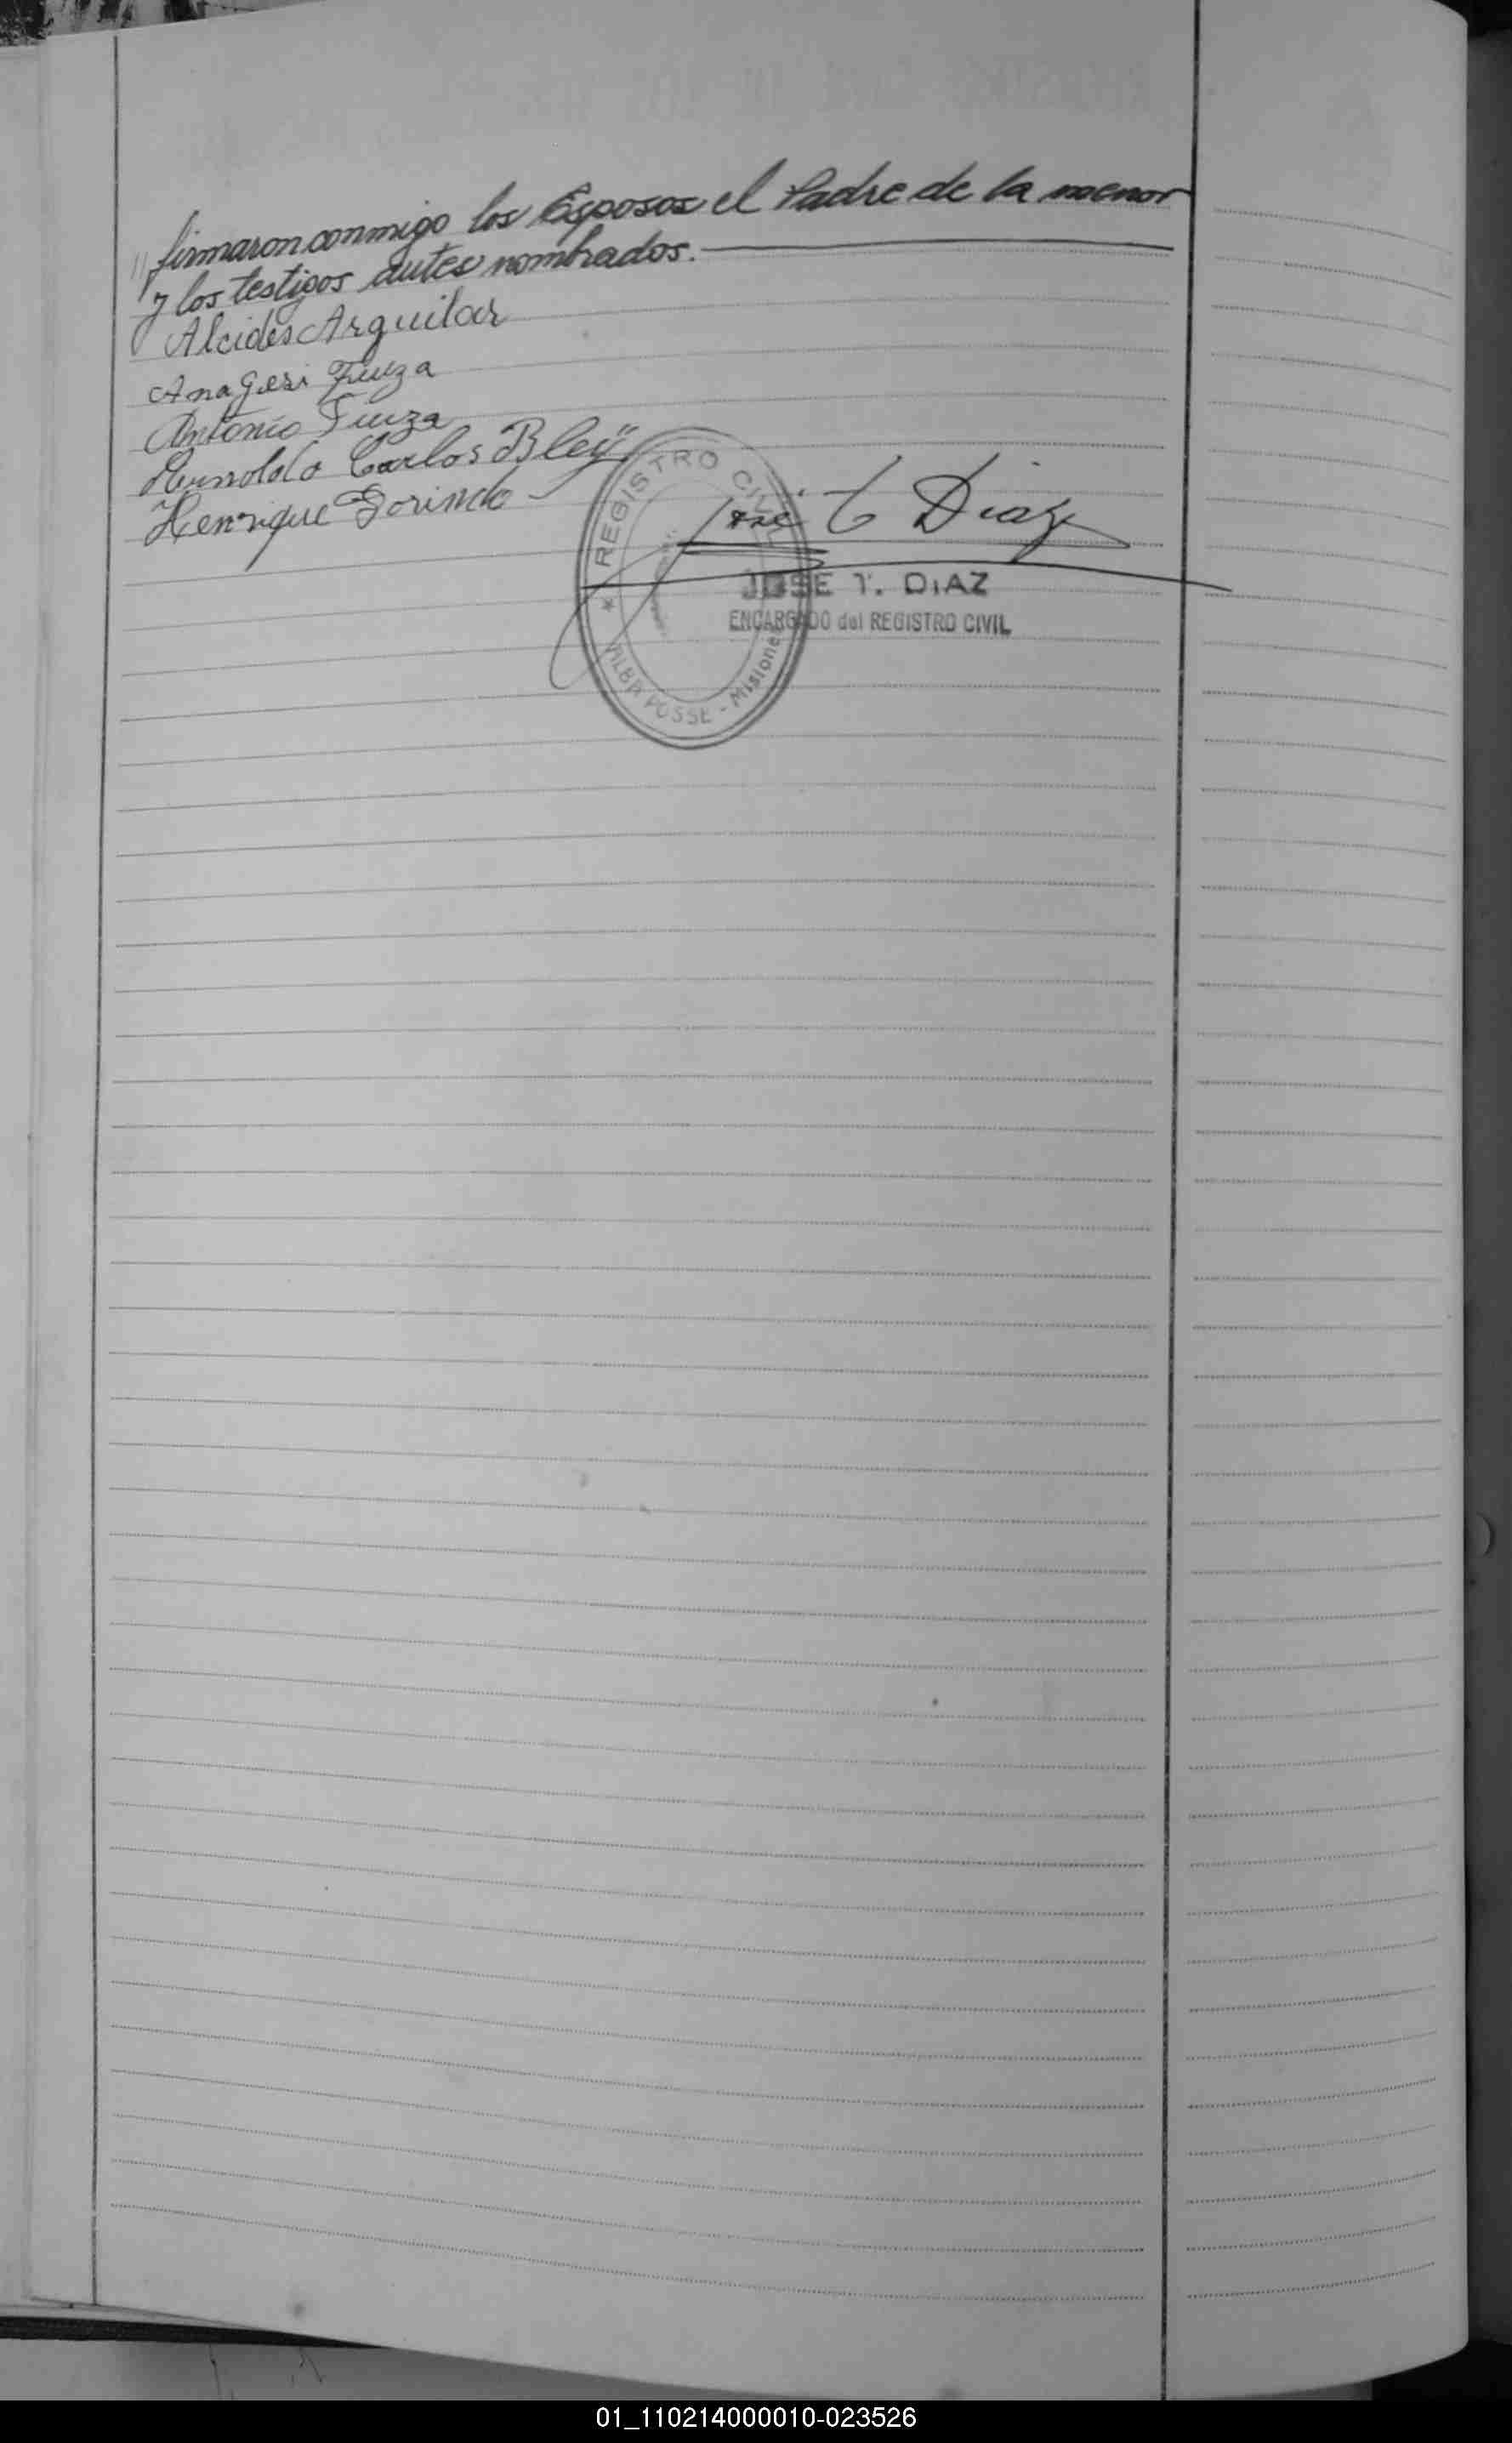 " firmaron conmigo los Esposos el Padre de la menor
y los testigos antes nombrados.
Alcides Arguilar
Ana Fiuza
Antonio Fiuza
Carlos Bley
Henrique
José T Diaz
REGISTRO CIVIL
JOSE T. DIAZ
ENCARGADO del REGISTRO CIVIL
ALBA POSSE - Misiones
01_110214000010-023526